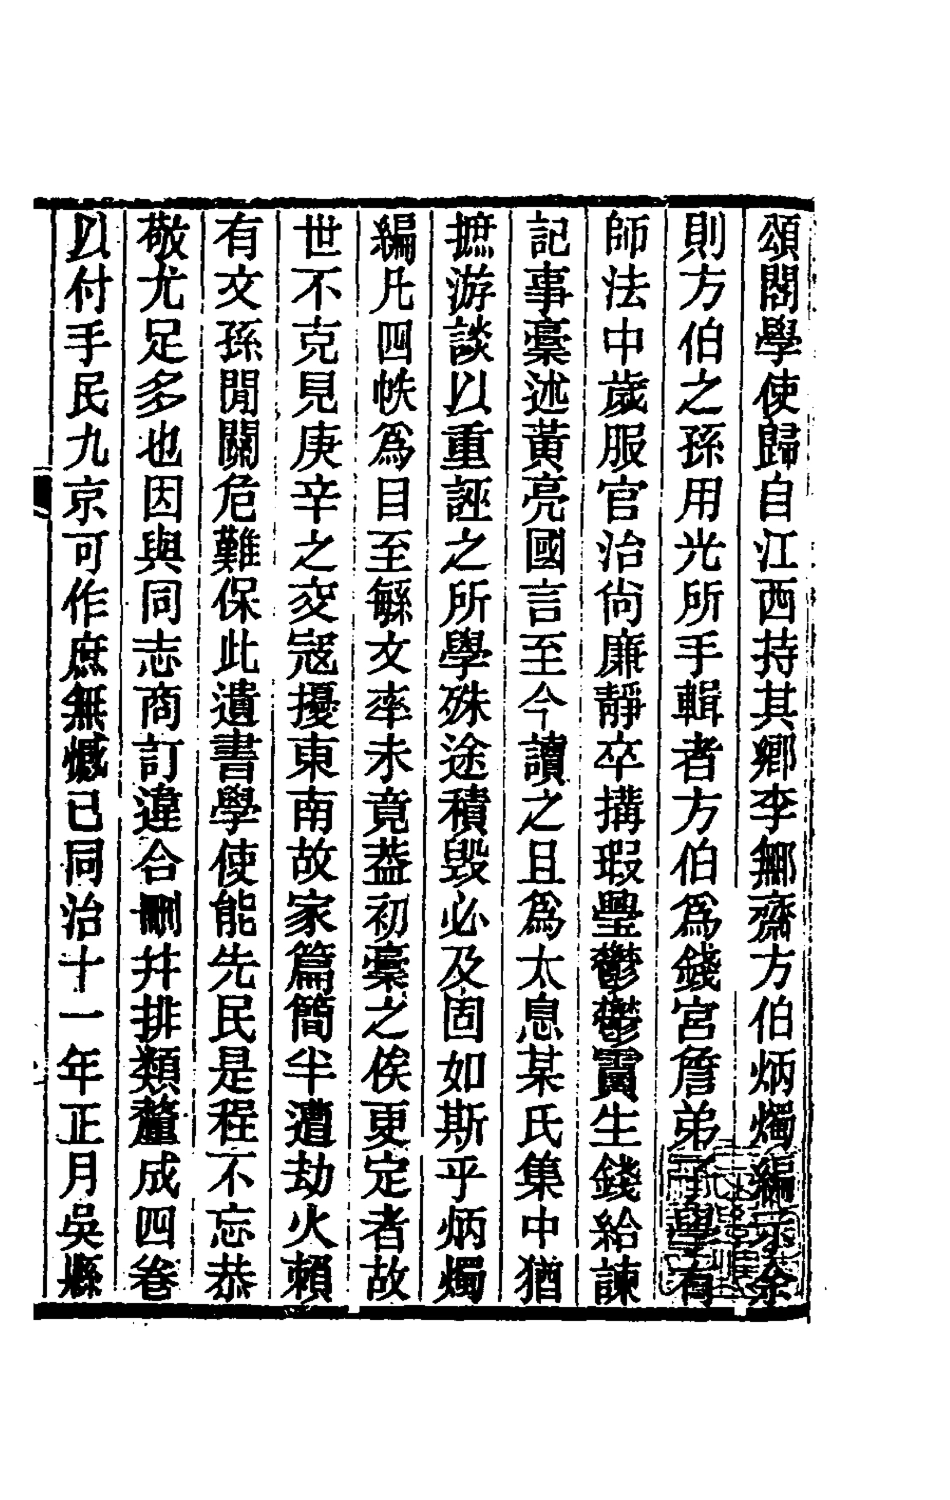 頌閣學使歸自江西持其鄉李鄦齋方伯炳燭編示余
則方伯之孫用光所手輯者方伯爲錢宮詹弟子學有
師法中歲服官治尙廉靜卒搆瑕舋鬱鬱賫生錢給諫
記事稾述黃亮國言至今讀之且爲太息某氏集中猶
摭游談以重誣之所學殊途積毀必及固如斯乎炳燭
編凡四帙爲目至緐文率未竟葢初稾之俟更定者故
世不克見庚辛之交寇擾東南故家篇簡半遭劫火賴
有文孫閒關危難保此遺書學使能先民是程不忘恭
敬尤足多也因與同志商訂違合刪幷排類釐成四卷
以付手民九京可作庶無憾已同治十一年正月吳縣